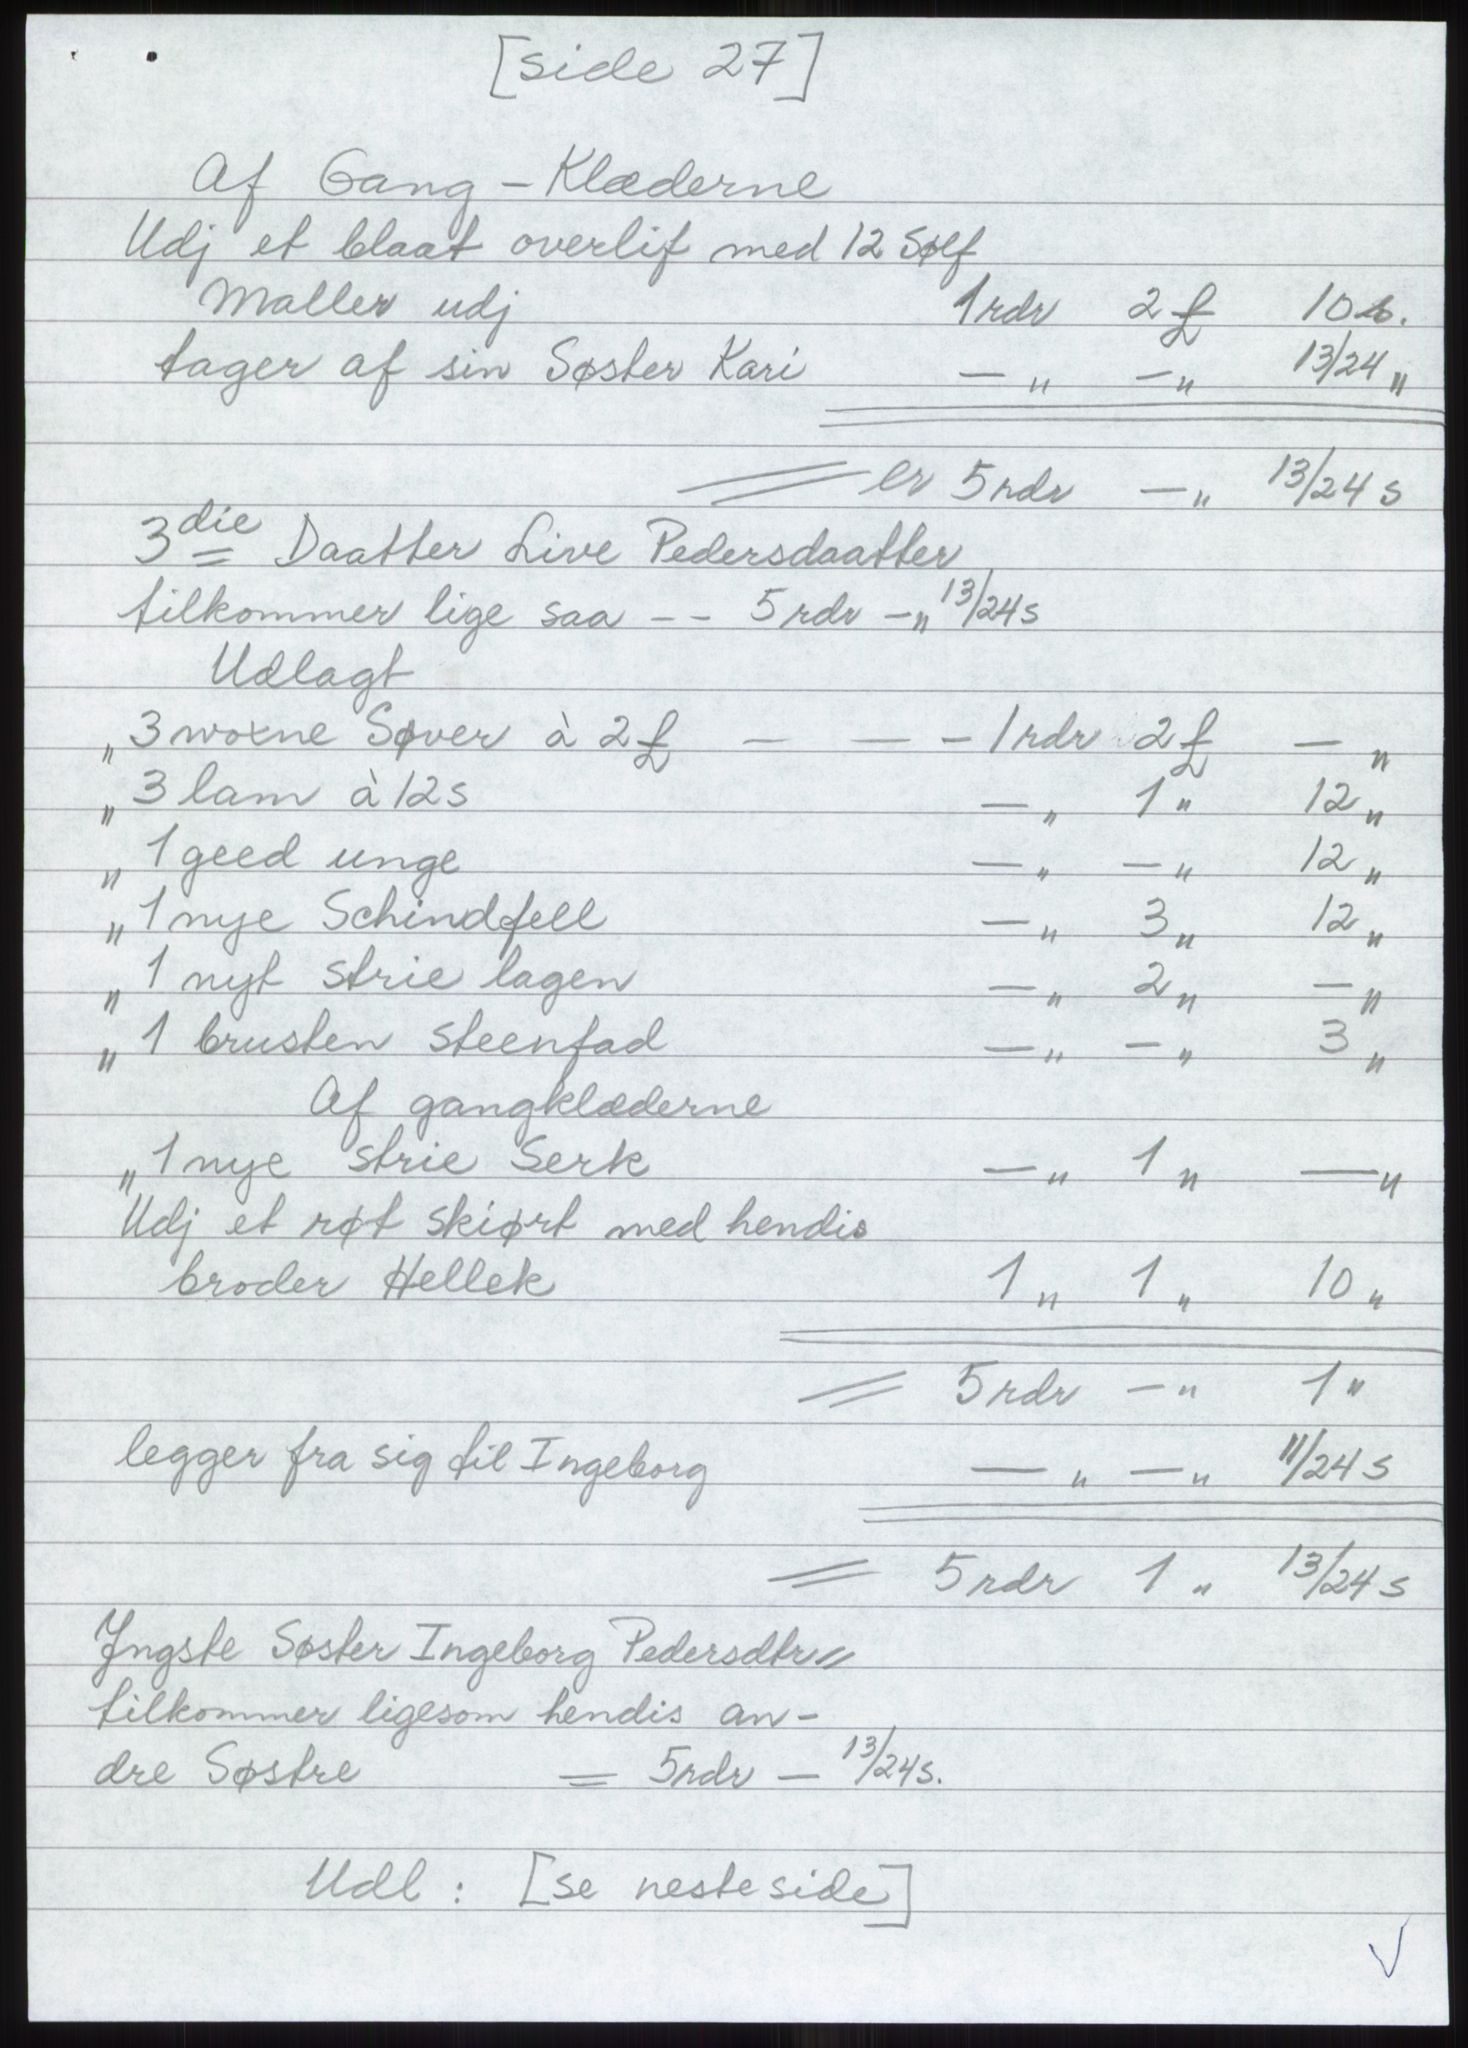 [side 27]
Af Gang - Klæderne
Udj et blaat overlif med 12 Sølf
Maller udj 1 rdr 2 £ 10 s.
tager af sin Søster Kari — „ — „ 13/24 „
er 5 rdr — „ 13/24 s
3die Daatter Live Pedersdaatter
tilkommer lige saa - - 5 rdr — „ 13/24 s
Udlagt
„ 3 woxne Søver à 2 £ — — — 1 rdr 2 £ — „
„ 3 lam à 12 s — „ 1 „ 12 „
„ 1 geed unge — „ — „ 12 „
„ 1 nye Schindfell — „ 3 „ 12 „
„ 1 nyt strie lagen — „ 2 „ — „
„ 1 brusten steenfad — „ — „ 3 „
Af gangklæderne
„ 1 nye strie Serk — „ 1 „ — „
Udj et røt skiørt med hendis
broder Hellek 1 „ 1 „ 10 „
= 5 rdr — „ 1 „
legger fra sig til Ingeborg — „ — „ 11/24 s
= 5 rdr 1 „ 13/24 s
Yngste Søster Ingeborg Pedersdtr =
tilkommer ligesom hendis an-
dre Søstre = 5 rdr — 13/24 s.
Udl : [se neste side]